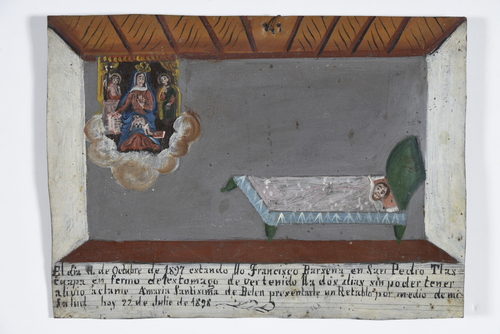 El dia 11 de Octubre de 1897 estando Yo Francisco Barsena en San Pedro Tlas-
cuapa en fermo del estomago de vertenido lla dos dias sin poder tener
alivio aclame Amaria Santisima de Belen presentarle un Retablo por medio de mi
Salud hoy 22 de Julio de 1898